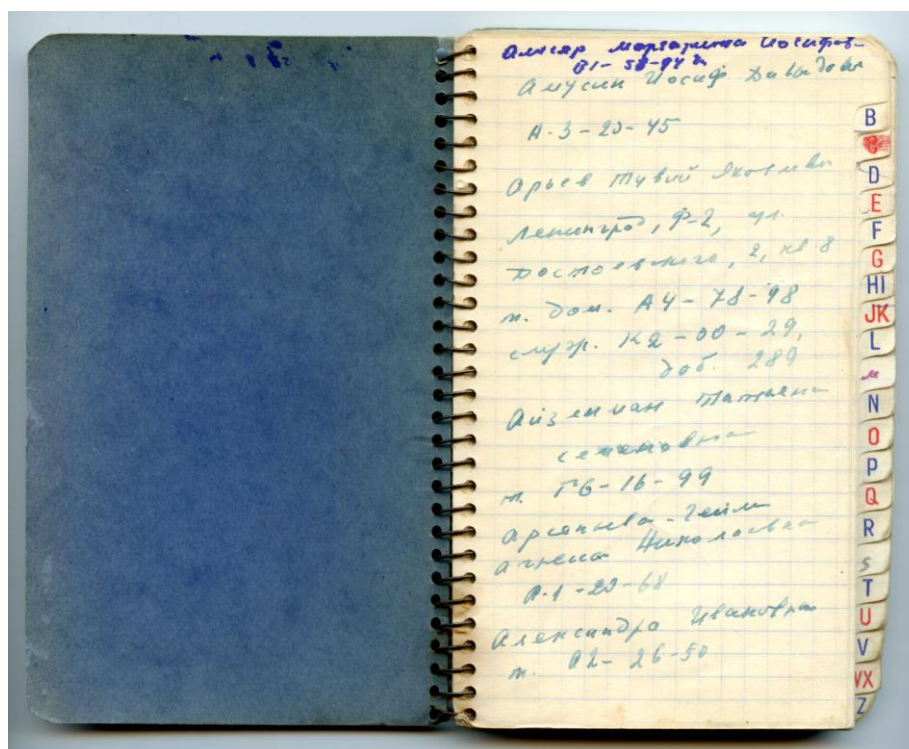 Маргарита Иосифов-
В1-58-94
Амусин Иосиф Давыдович
А-3-20-45
Арьев Тувий Яковлевич
Ленинград, Ф-2, ул.
Достоевского, 2, кв 8
т. дом. А4-78-98
служ. К2-00-29,
доб. 289
Айзенман Татьяна
Семеновна
т. Г6-16-99
Арсеньева-Гейл
Николаевна
А-1-20-68
Александра Ивановна
т. А2-26-50
B
C
D
E
F
G
HI
JK
L
M
N
O
P
Q
R
S
T
U
V
VX
Z